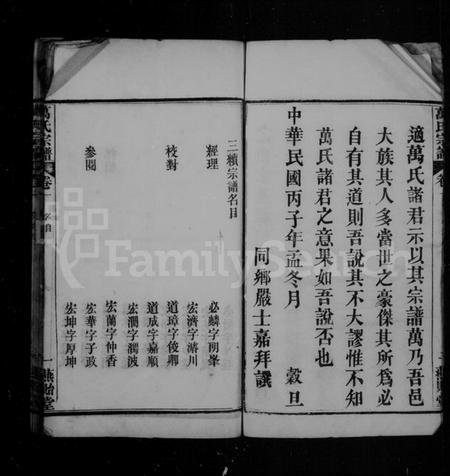 適萬氏諸君示以其宗譜萬乃吾邑
大族其人多當世之豪傑其所爲必
自有其道則吾說其不大謬惟不知
萬氏諸君之意果如吾說否也
中華民國丙子年孟冬月 穀旦
同鄉嚴士嘉拜譔
萬氏宗譜
卷
三續宗譜名目
經理
必麟字朝峯
宏濟字濬川
校對
道璋字俊卿
道成字嘉順
宏潤字潤波
參閱
宏蘭字仲香
宏華字子政
宏坤字厚坤
萬氏宗譜
卷一
一
燕貽堂
FamilySearch